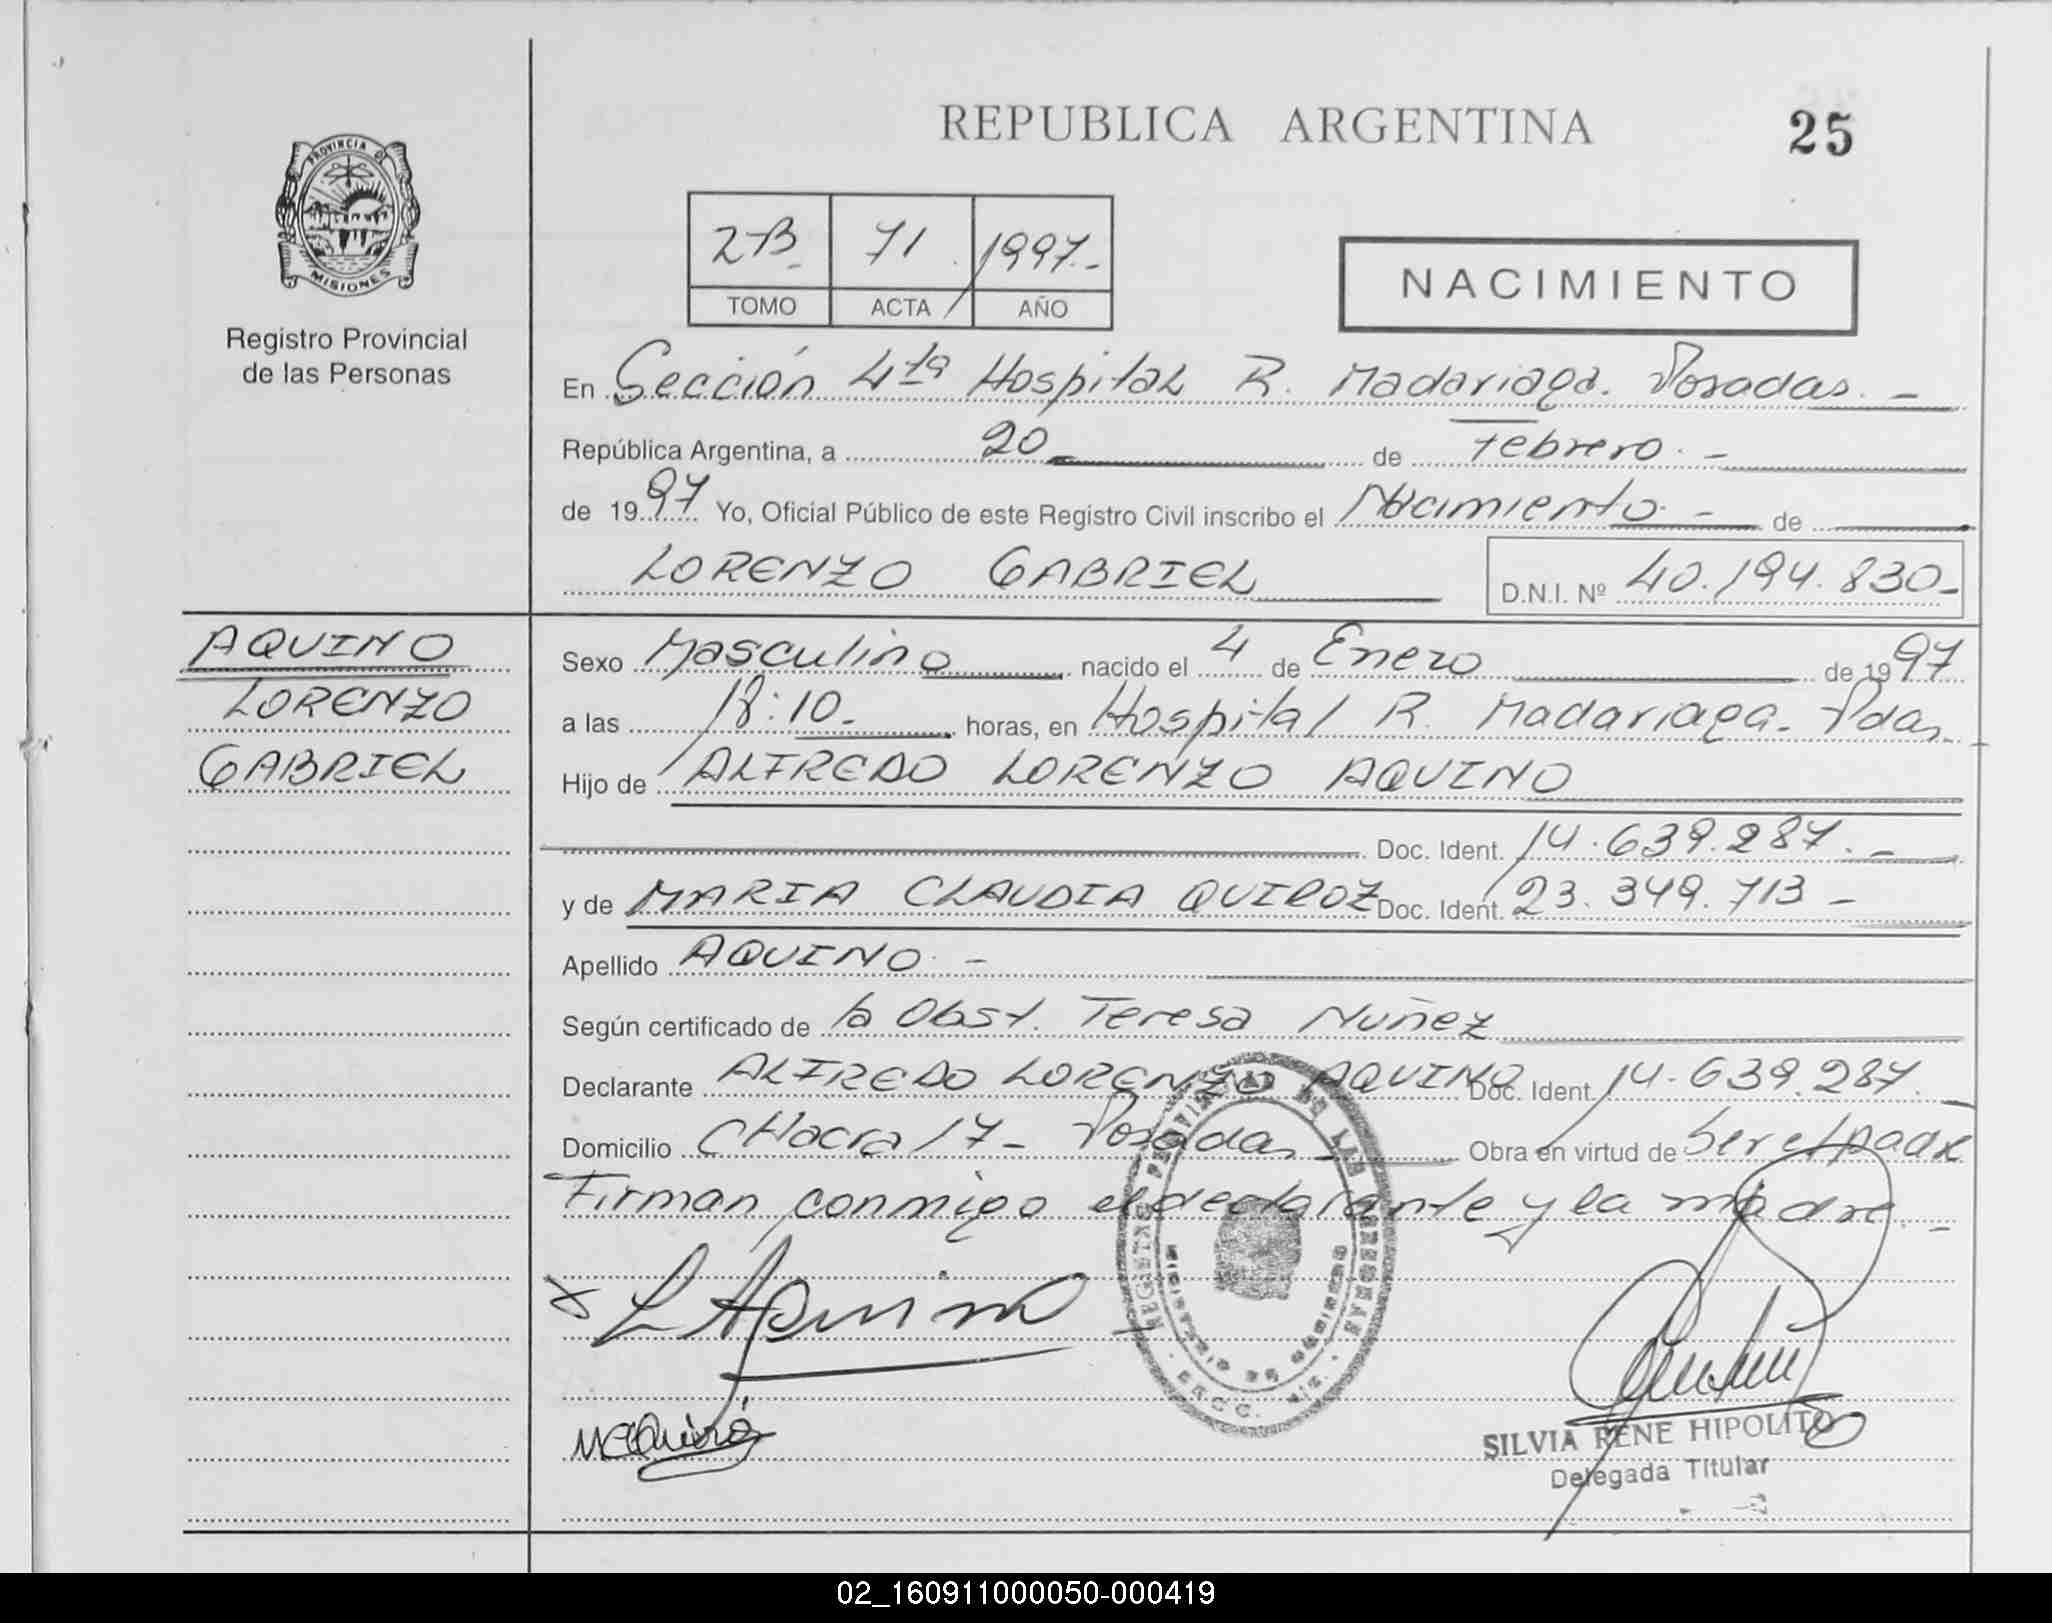 REPUBLICA ARGENTINA
25
PROVINCIA DE
MISIONES
Registro Provincial
de las Personas
2-B 71 1997.-
TOMO ACTA AÑO
NACIMIENTO
En Sección 4ta Hospital R. Madariaga. Posadas. -
República Argentina, a 20 de Febrero. -
de 1997 Yo, Oficial Público de este Registro Civil inscribo el Nacimiento. - de
LORENZO GABRIEL D.N.I. Nº 40.194.830-
AQUINO
LORENZO
GABRIEL
Sexo Masculino nacido el 4 de Enero de 1997
a las 18:10. horas, en Hospital R. Madariaga. Pdas.
Hijo de ALFREDO LORENZO AQUINO
Doc. Ident. 14.639.287. -
y de MARIA CLAUDIA QUIROZ Doc. Ident. 23.349.713 -
Apellido AQUINO. -
Según certificado de la Obst. Teresa Nuñez
Declarante ALFREDO LORENZO AQUINO Doc. Ident. 14.639.287.
Domicilio CHacra 17- Posadas Obra en virtud de Ser el padre
Firman conmigo el declarante y la madre. -
L Aquino
MCQuiroz
REGISTRO PROVINCIAL DE LAS PERSONAS
MINISTERIO DE GOBIERNO
SILVIA RENE HIPOLITO
Delegada Titular
02_160911000050-000419